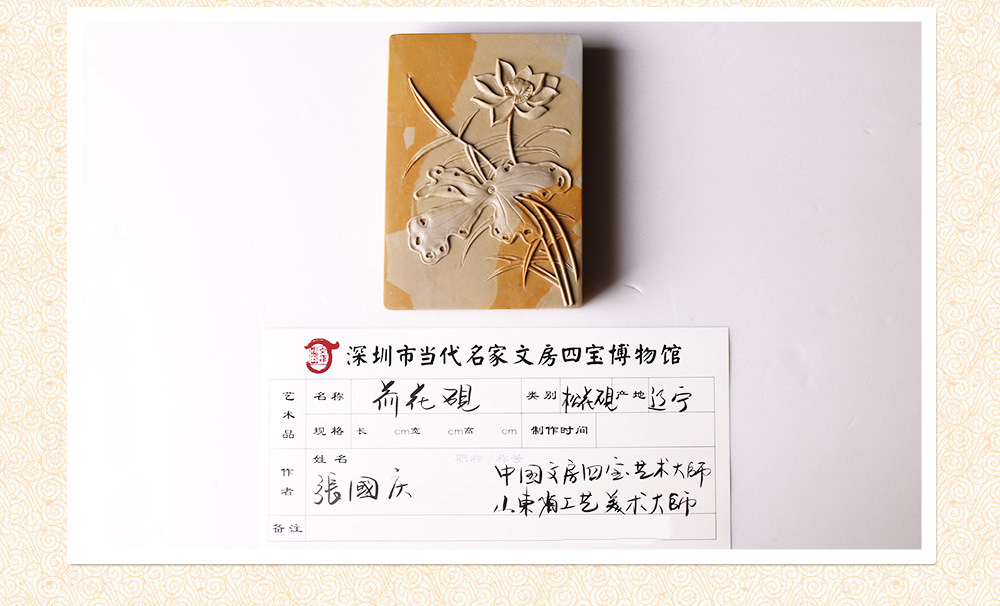 深圳市当代名家文房四宝博物馆
艺术品 名称 荷花砚 类别 松花砚 产地 辽宁
规格 长 cm宽 cm高 cm 制作时间
作者 姓名 职称/称号
張國庆 中国文房四宝艺术大师
山東省工艺美术大师
备注